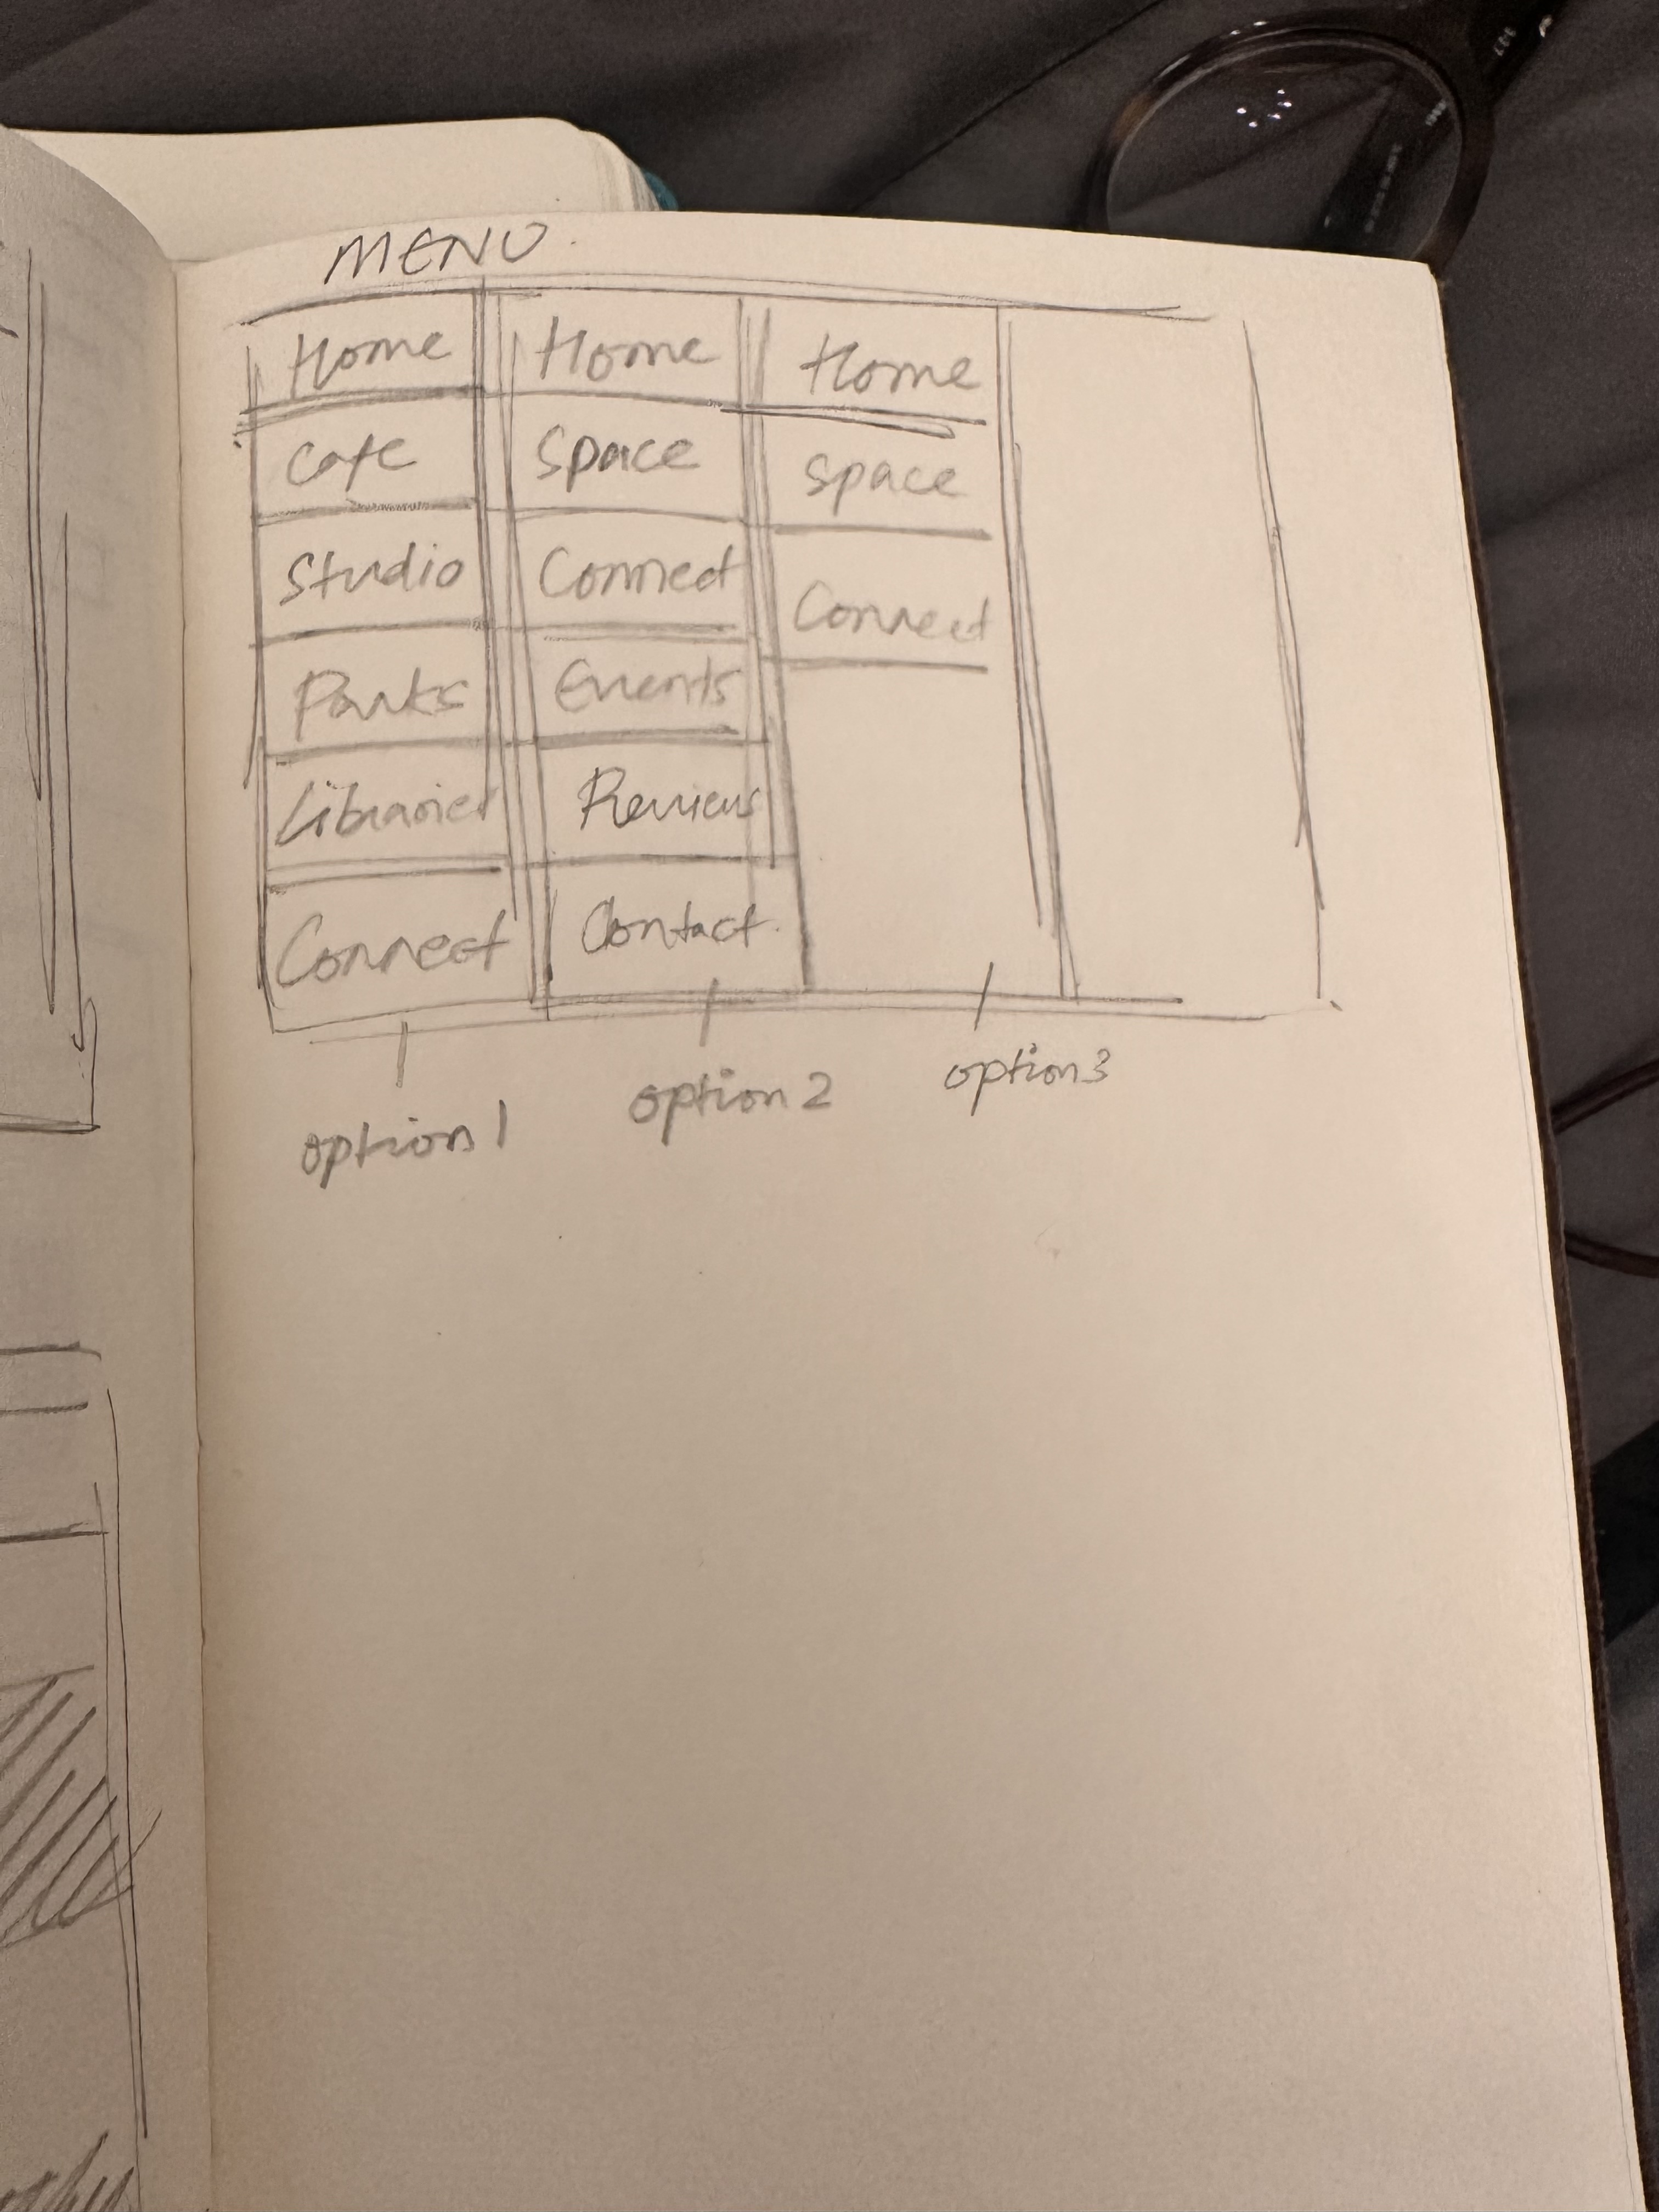 MENU.
Home Home Home
Cafe Space Space
Studio Connect Connect
Parks Events
Libraries Reviews
Connect Contact
option 1 option 2 option 3